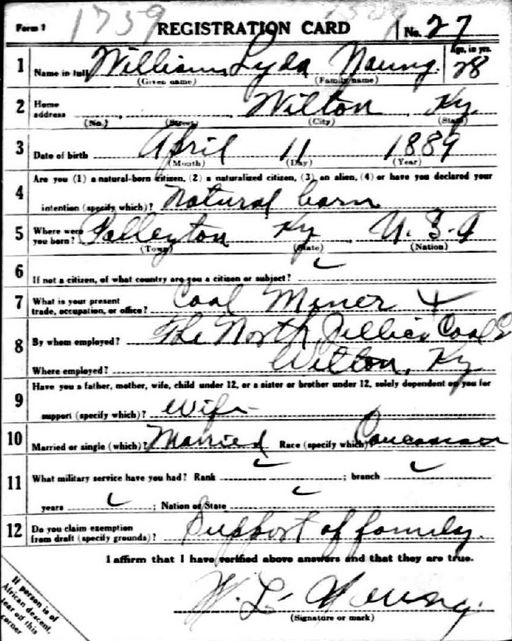 Form 1 1739 REGISTRATION CARD No. 27
1 Name in full William Lyda Young Age, in yrs. 28
(Given name) (Family name)
2 Home address Wilton Ky
(No.) (Street) (City) (State)
3 Date of birth April 11 1889
(Month) (Day) (Year)
4 Are you (1) a natural-born citizen, (2) a naturalized citizen, (3) an alien, (4) or have you declared your
intention (specify which)? Natural born
5 Where were you born? Ky U.S.A
(Town) (State) (Nation)
6 If not a citizen, of what country are you a citizen or subject?
7 What is your present trade, occupation, or office? Coal Miner
8 By whom employed? The North Jellico Coal Co
Where employed? Wilton, Ky
9 Have you a father, mother, wife, child under 12, or a sister or brother under 12, solely dependent on you for
support (specify which)? Wife
10 Married or single (which)? Married Race (specify which)? Caucasian
11 What military service have you had? Rank ; branch
years ; Nation or State
12 Do you claim exemption from draft (specify grounds)? Support of family.
I affirm that I have verified above answers and that they are true.
W. L. Young.
(Signature or mark)
If person is of
African descent,
tear off this
corner